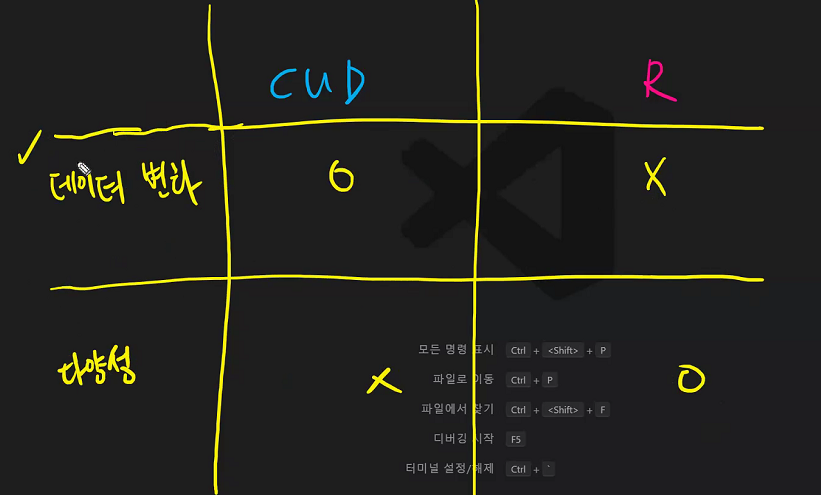 CUD R
데이터 변화 O X
다양성 X O
모든 명령 표시 Ctrl + <Shift> + P
파일로 이동 Ctrl + P
파일에서 찾기 Ctrl + <Shift> + F
디버깅 시작 F5
터미널 설정/해제 Ctrl + `